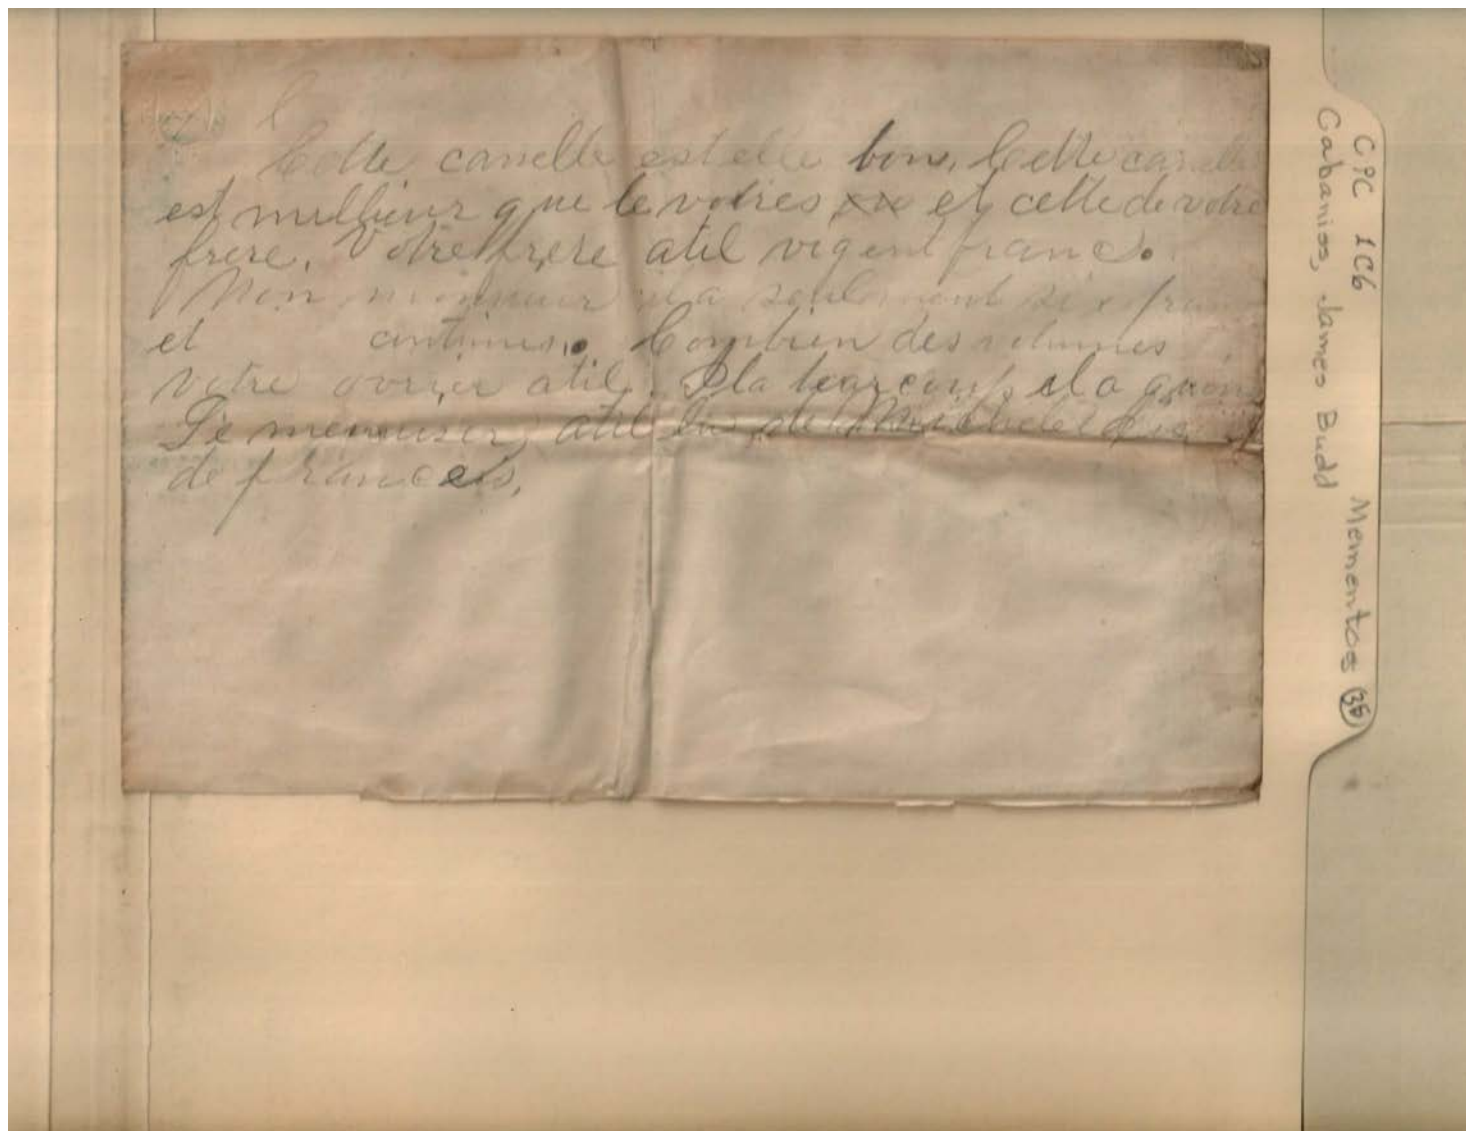 Cette canelle est elle bon, Cette canelle
est meilleur que le votres xx et cette de votre
frere. Votre frere atil vigent francs.
Non monsieur il a seulement six
et centimes. Combien des volumes
votre ovrier atil. Il a beaucoup, il a
Le menuiser, atil de
de francais,
CPC 1C6 Mementos 38
Cabaniss, James Budd